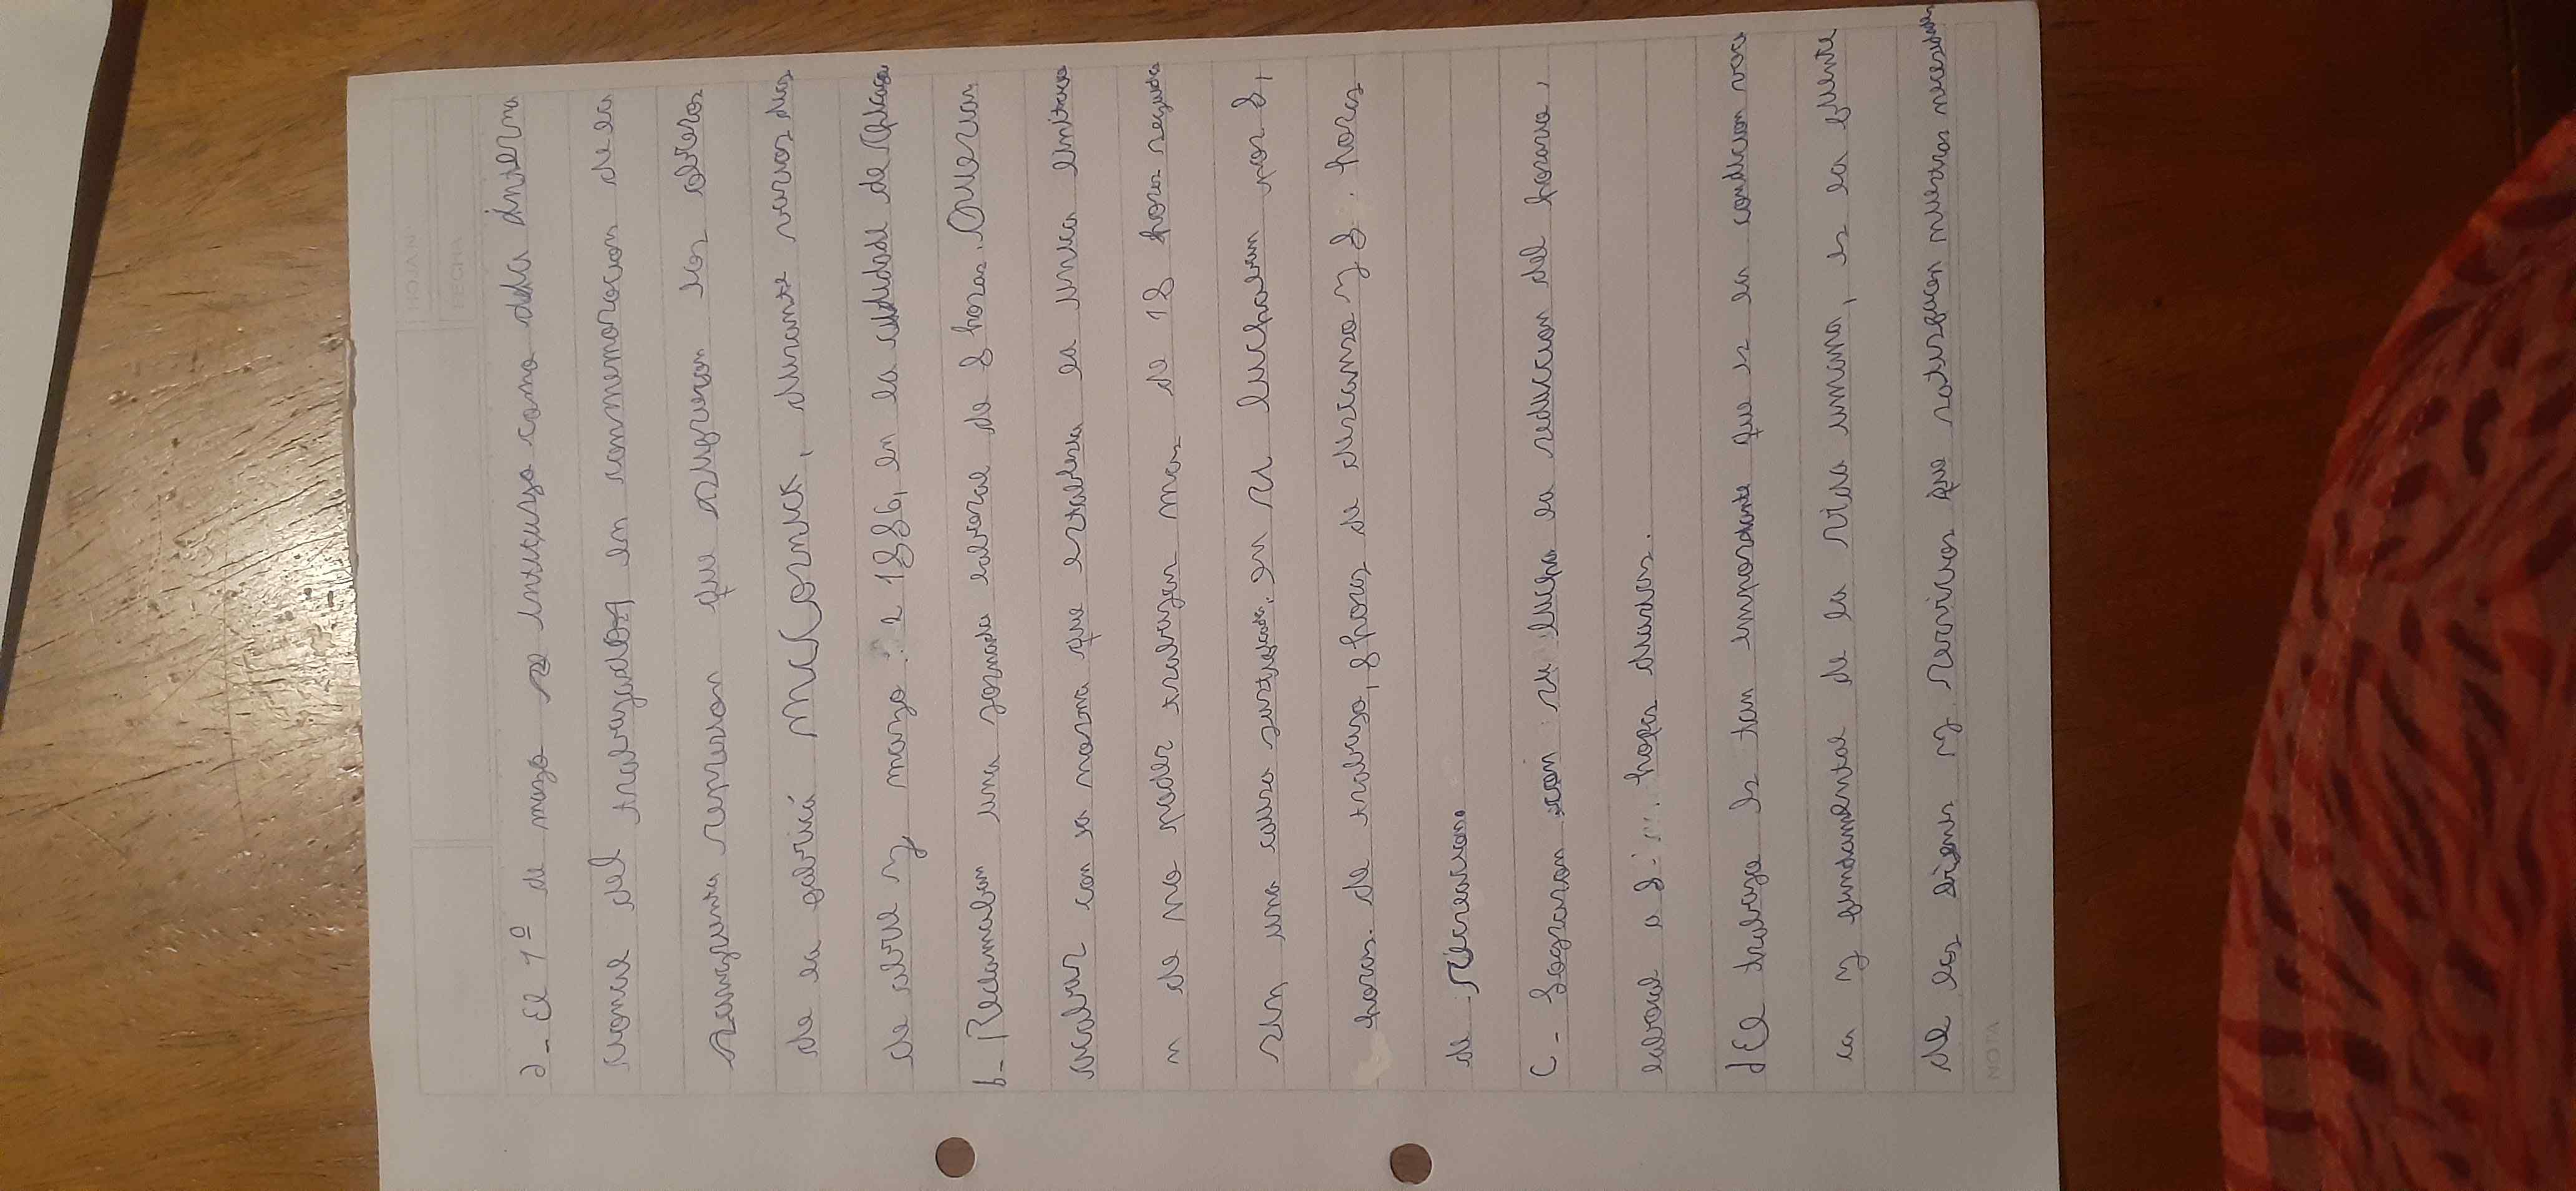 HOJA Nº
FECHA
a- El 1º de mayo se instituyo como dela interna
cional del trabajador en conmemoracion de la
sangrienta represion que sufrieron los obreros
de la fabrica McCormick, durante varios dias
de abril y mayo 1886, en la ciudad de Chicago
b- Reclamaban una jornada laboral de 8 horas. Querian
acabar con la norma que establecia la unica limitacio
n de no poder trabajar mas de 18 horas seguidas
sin una causa justificada. en su luchaban por 8,
horas. de trabajo, 8 horas de descanso y 8. horas
de recreacion.
C- Lograron con su lucha la reduccion del horario,
laboral a 8 horas diarias.
d El trabajo es tan importante que es la condicion basi
ca y fundamental de la vida umana, es la fuente
de los bienes y servicios que satisfacen nuestras necesidades
NOTA